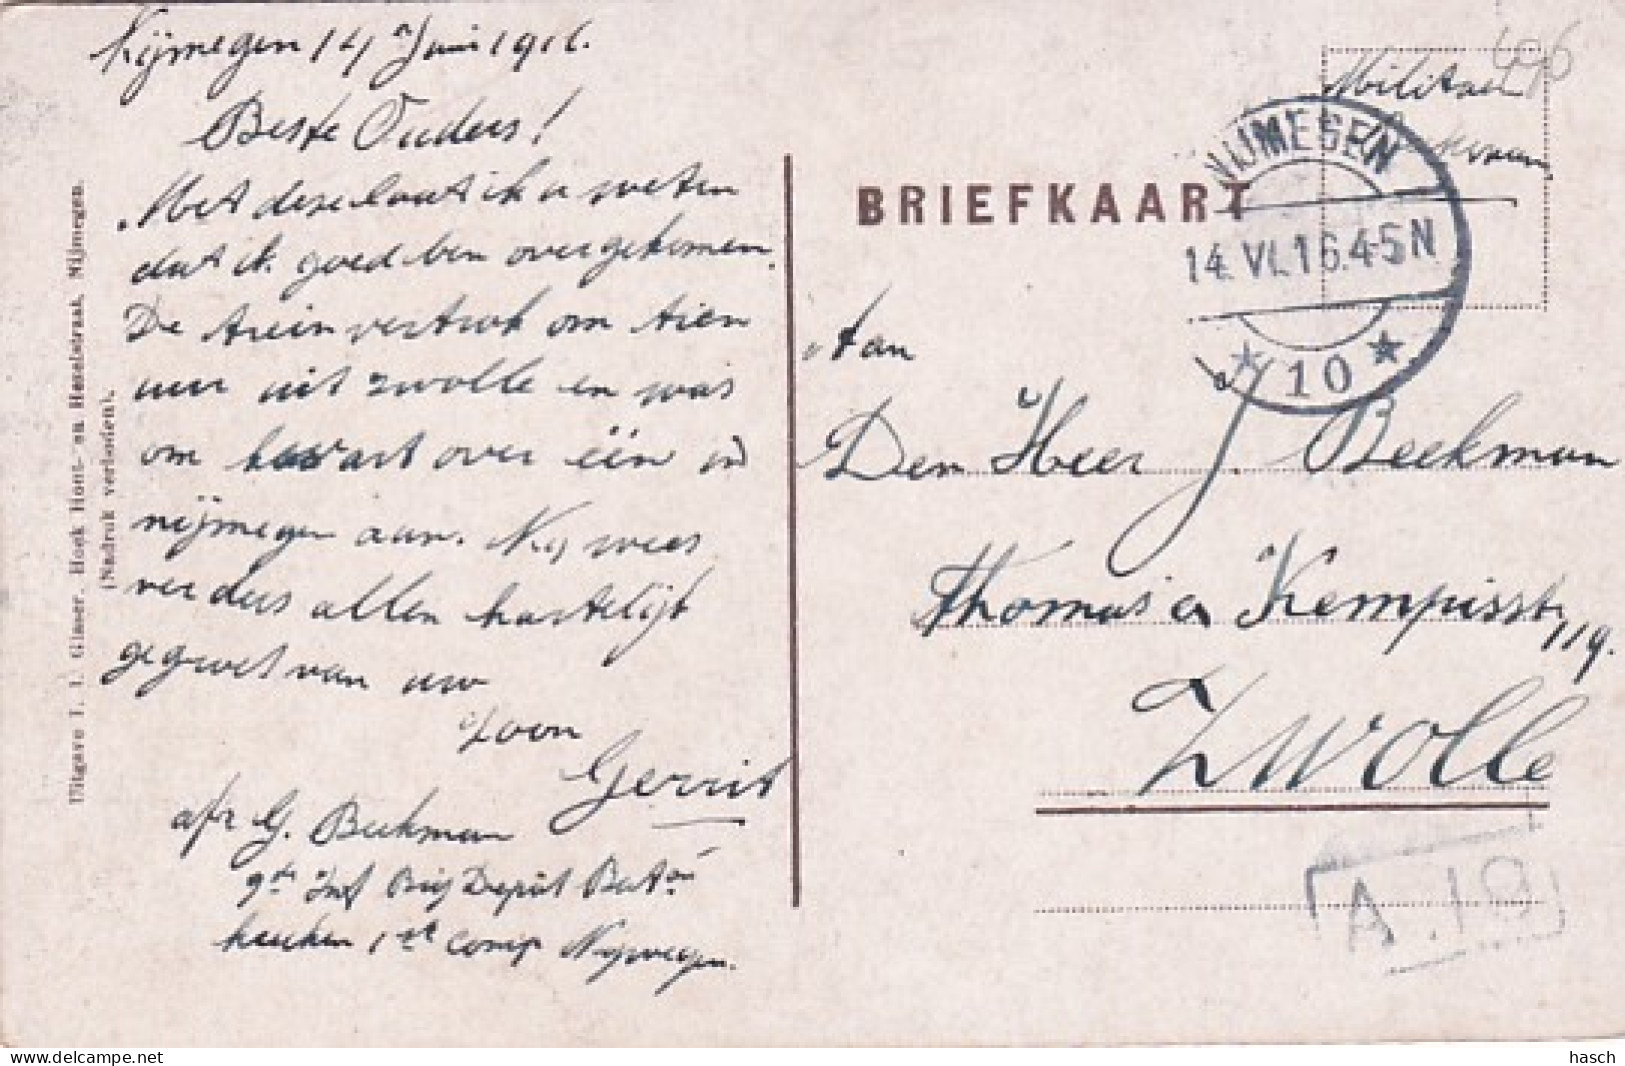 Nijmegen 14 Juni 1916.
Beste Ouders!
Met deze laat ik u weten
dat ik goed ben overgekomen.
De trein vertrok om tien
uur uit zwolle en was
om kwart over één in
nijmegen aan. Nu, wees
verders allen hartelijk
gegroet van uw
zoon
Gerrit
afz G. Beekman
9de Inf Brig Depot Baton
keuken 1ste comp Nijmegen.
Uitgave I. I. Glaser, Hoek Hout- en Hezelstraat, Nijmegen.
(Nadruk verboden).
496
Militair
BRIEFKAART
NIJMEGEN
14.VI.16.4-5N
10
Aan
Den Heer J. Beekman
Thomas a Kempisstr
119.
Zwolle
A.18
hasch